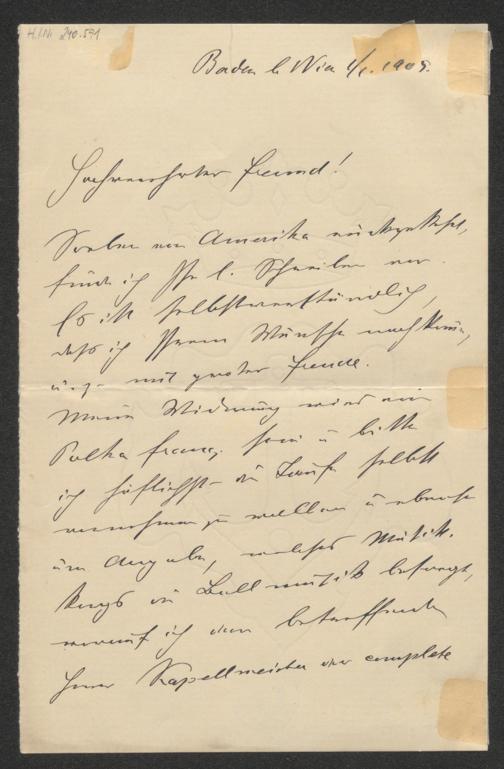 H.I.N. 240.591
Baden b. Wien 4/1. 1909.
Hochverehrter Freund!
Soeben von Amerika rückgekehrt,
finde ich Ihr l. Schreiben vor.
Es ist selbstverständlich,
daß ich Ihrem Wunsche nachkomme,
u. z. mit großer Freude.
Meine Widmung wird eine
Polka franç. sein u bitte
ich höflichst die Taufe selbst
vornehmen zu wollen u ebenso
um Angabe, welches Musik-
korps die Ballmusik besorgt,
worauf ich dem betreffenden
Herrn Kapellmeister die complete